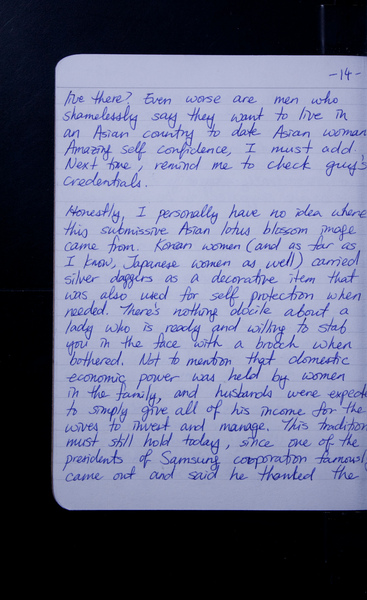 -14-
live there? Even worse are men who
shamelessly say they want to live in
an Asian country to date Asian woman.
Amazing self confidence, I must add.
Next time, remind me to check guy's
credentials.
Honestly, I personally have no idea where
this submissive Asian lotus blossom image
came from. Korean women (and as far as
I know, Japanese women as well) carried
silver daggers as a decorative item that
was also used for self protection when
needed. There's nothing docile about a
lady who is ready and willing to stab
you in the face with a broch when
bothered. Not to mention that domestic
economic power was held by women
in the family, and husbands were expecte
to simply give all of his income for the
wives to invest and manage. This tradition
must still hold today, since one of the
presidents of Samsung cooporation famousl
came out and said he thanked the